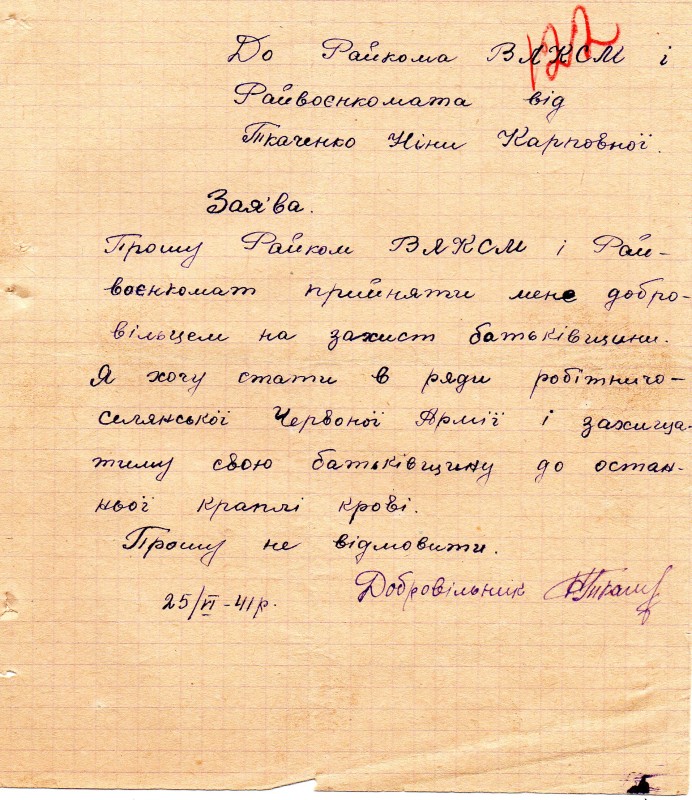 122
До Райкома ВЛКСМ і
Райвоєнкомата від
Ткаченко Ніни Карповної.
Зая'ва.
Прошу Райком ВЛКСМ і Рай-
воєнкомат прийняти мене добро-
вільцем на захист батьківщини.
Я хочу стати в ряди робітничо-
селянської Червоної Армії і захища-
тиму свою батьківщину до остан-
ньої краплі крові.
Прошу не відмовити.
25/VI-41р. Добровільник